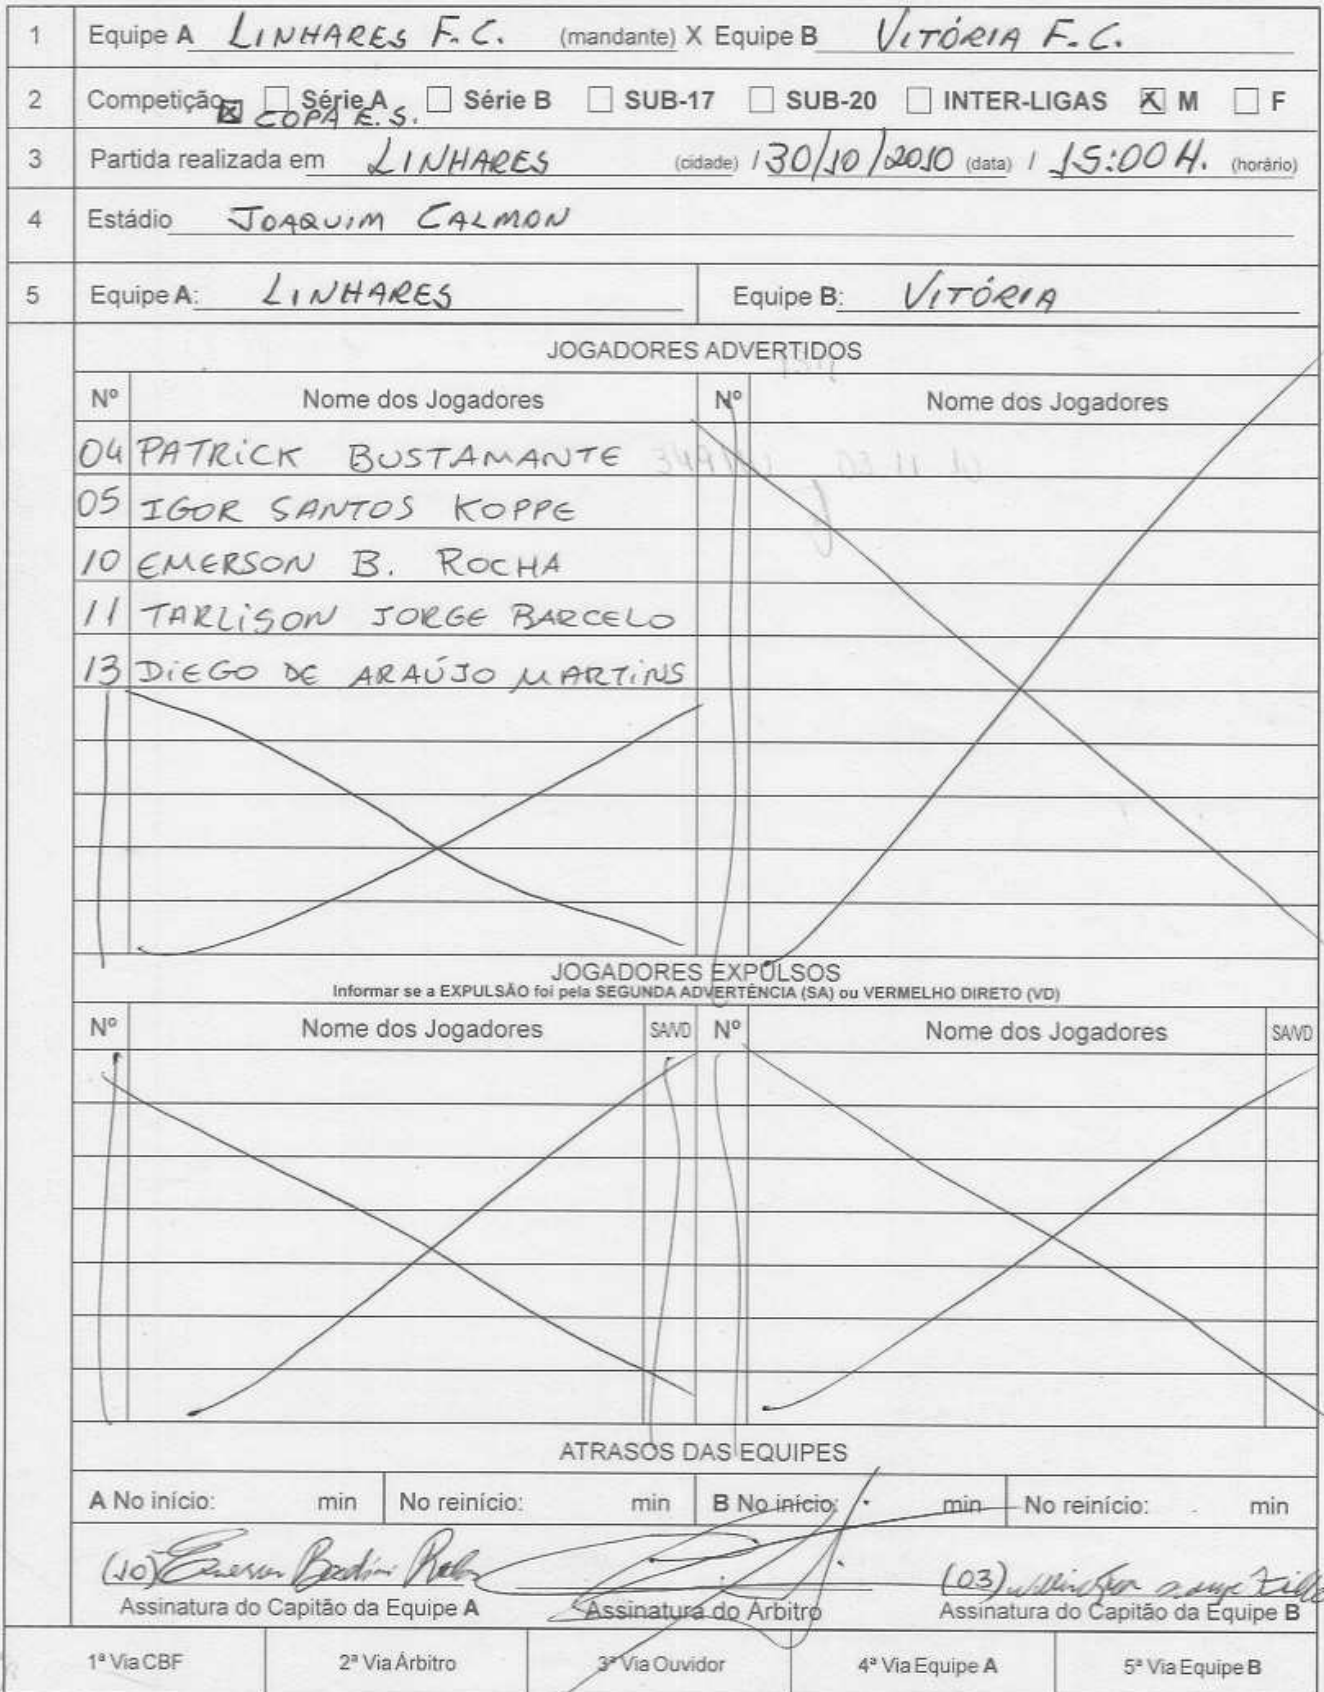 1 Equipe A LINHARES F.C. (mandante) X Equipe B VITÓRIA F.C.
2 Competição Série A Série B SUB-17 SUB-20 INTER-LIGAS M F
COPA E.S.
3 Partida realizada em LINHARES (cidade) / 30/10/2010 (data) / 15:00 H. (horário)
4 Estádio JOAQUIM CALMON
5 Equipe A: LINHARES Equipe B: VITÓRIA
JOGADORES ADVERTIDOS
Nº Nome dos Jogadores Nº Nome dos Jogadores
04 PATRICK BUSTAMANTE
05 IGOR SANTOS KOPPE
10 EMERSON B. ROCHA
11 TARLISON JORGE BARCELO
13 DIEGO DE ARAÚJO MARTINS
JOGADORES EXPULSOS
Informar se a EXPULSÃO foi pela SEGUNDA ADVERTÊNCIA (SA) ou VERMELHO DIRETO (VD)
Nº Nome dos Jogadores SA/VD Nº Nome dos Jogadores SA/VD
ATRASOS DAS EQUIPES
A No início: min No reinício: min B No início: min No reinício: min
(10) Emerson (03)
Assinatura do Capitão da Equipe A Assinatura do Árbitro Assinatura do Capitão da Equipe B
1ª Via CBF 2ª Via Árbitro 3ª Via Ouvidor 4ª Via Equipe A 5ª Via Equipe B